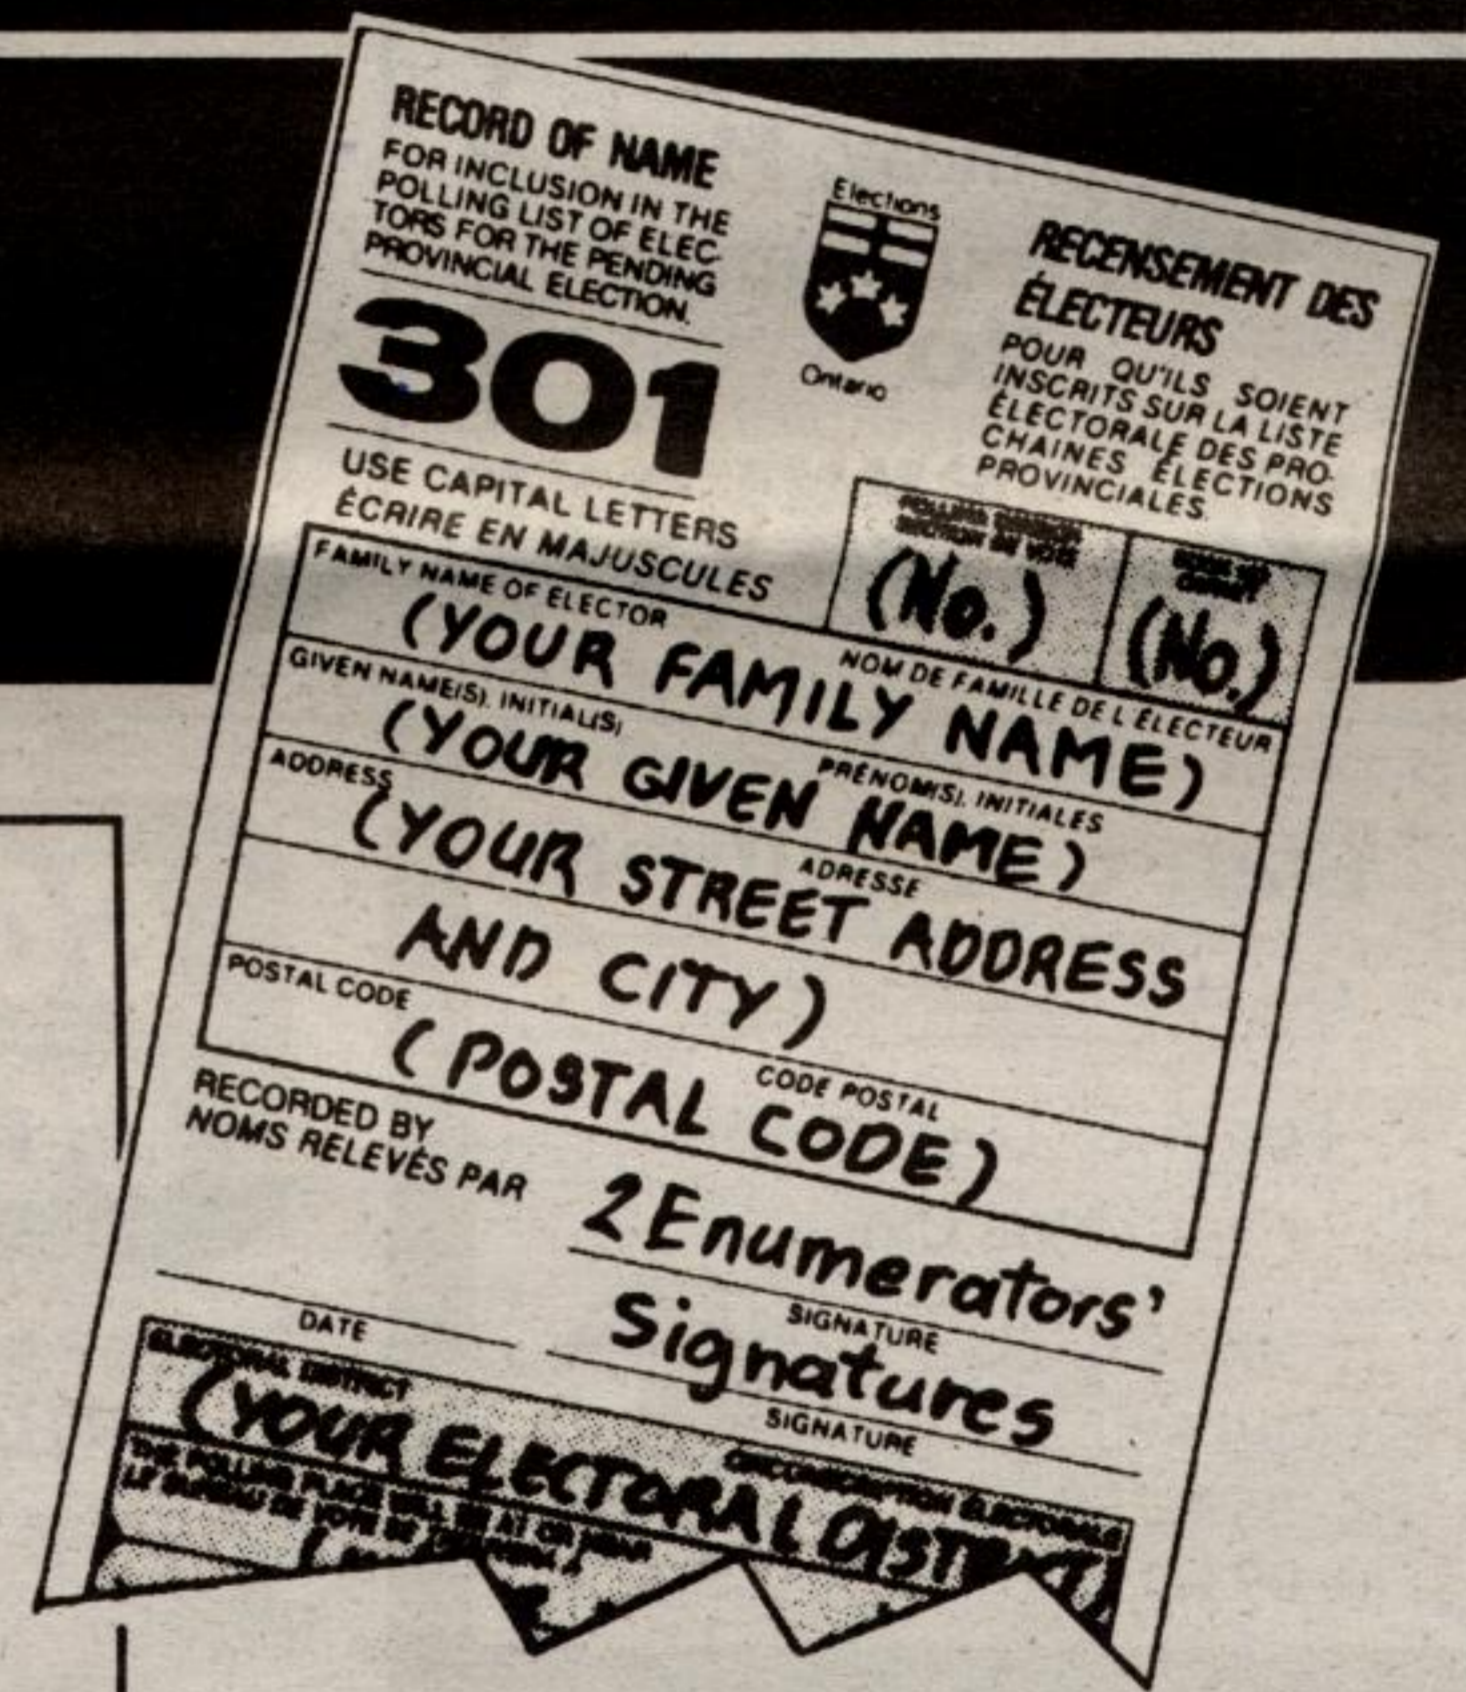 RECORD OF NAME
FOR INCLUSION IN THE
POLLING LIST OF ELEC-
TORS FOR THE PENDING
PROVINCIAL ELECTION.
301
USE CAPITAL LETTERS
ÉCRIRE EN MAJUSCULES
Elections
Ontario
RECENSEMENT DES
ÉLECTEURS
POUR QU'ILS SOIENT
INSCRITS SUR LA LISTE
ÉLECTORALE DES PRO-
CHAINES ÉLECTIONS
PROVINCIALES.
POLLING DIVISION
SECTION DE VOTE
(No.)
(No.)
FAMILY NAME OF ELECTOR
NOM DE FAMILLE DE L'ÉLECTEUR
(YOUR FAMILY NAME)
GIVEN NAME(S), INITIAL(S)
PRÉNOM(S), INITIALES
(YOUR GIVEN NAME)
ADDRESS
ADRESSE
(YOUR STREET ADDRESS
AND CITY)
POSTAL CODE
CODE POSTAL
(POSTAL CODE)
RECORDED BY
NOMS RELEVÉS PAR
2 Enumerators'
SIGNATURE
Signatures
SIGNATURE
DATE
ELECTORAL DISTRICT
CIRCONSCRIPTION ÉLECTORALE
(YOUR ELECTORAL DISTRICT)
THE POLLING PLACE WILL BE AT OR NEAR
LE BUREAU DE VOTE SE